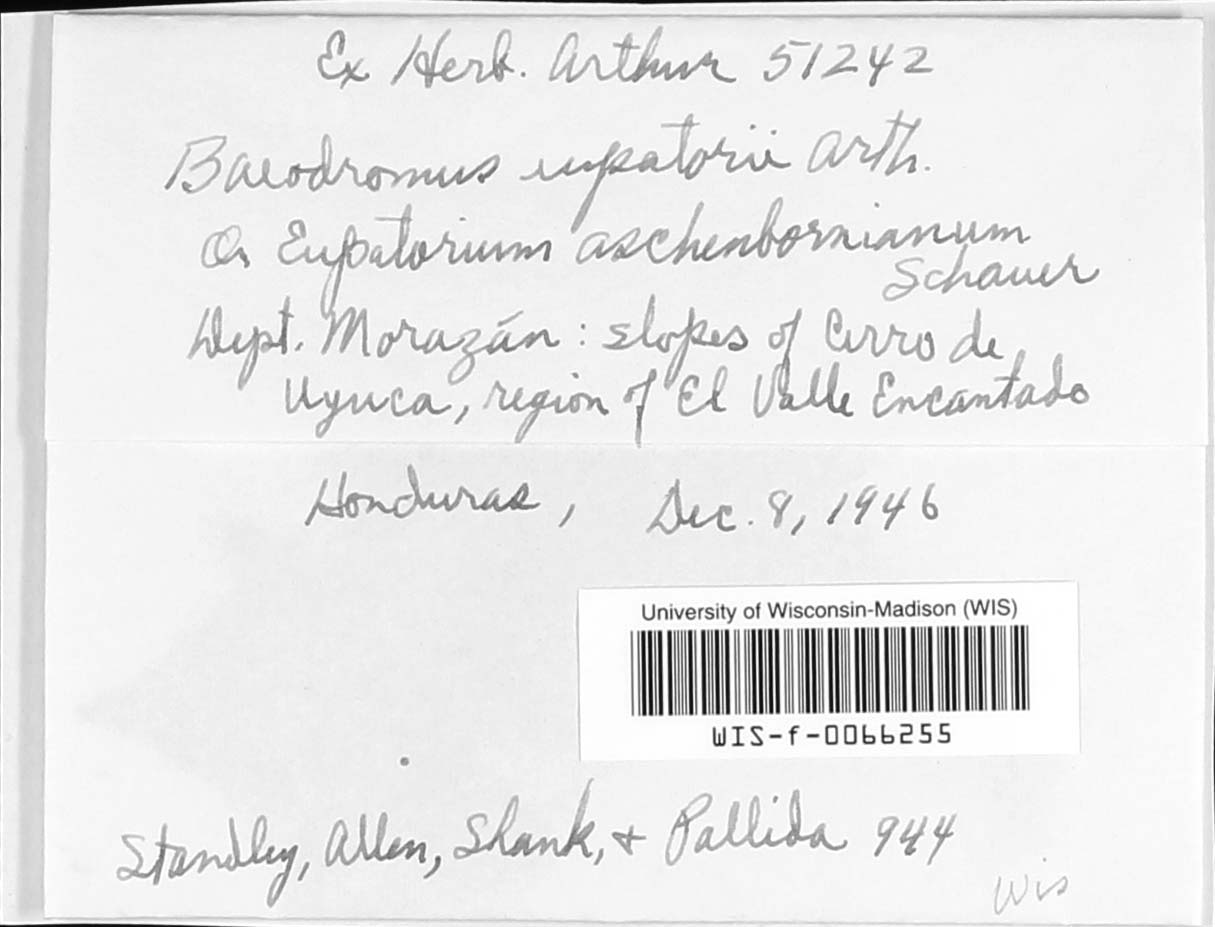 Ex Herb. Arthur 51242
Baeodromus eupatorii Arth.
On Eupatorium aschenbornianum
Schauer
Dept. Morazán: slopes of Cerro de
Uyuca, region of El Valle Encantado
Honduras, Dec. 8, 1946
University of Wisconsin-Madison (WIS)
WIS-f-0066255
Standley, Allen, Shank, + Pallida 944
Wis